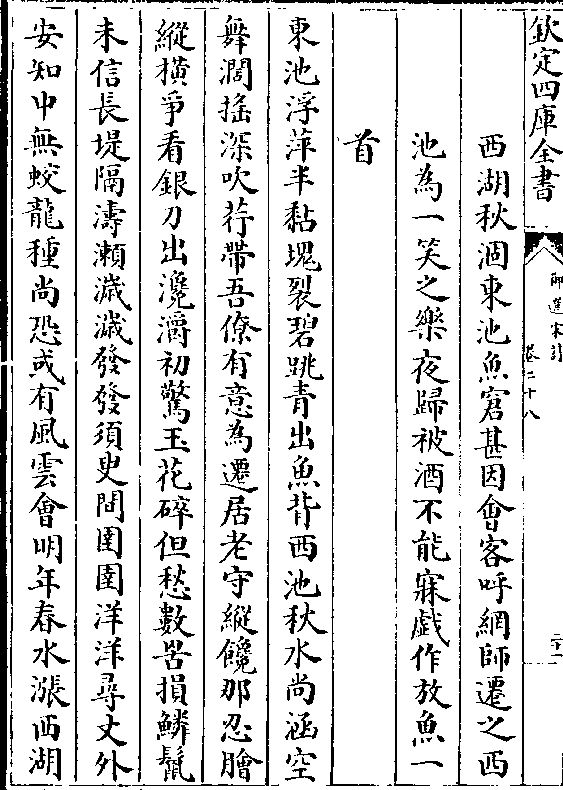 欽定四庫全書
御選宋詩
卷二十八
二十一
西湖秋涸東池魚窘甚因會客呼網師遷之西
池為一笑之樂夜歸被酒不能寐戲作放魚一
首
東池浮萍半黏塊裂碧跳青出魚背西池秋水尚涵空
舞濶搖深吹荇帶吾僚有意為遷居老守縱饞那忍膾
縱橫爭看銀刀出瀺灂初驚玉花碎但愁數罟損鱗鬛
未信長堤隔濤瀬濊濊發發須臾間圉圉洋洋尋丈外
安知中無蛟龍種尚恐或有風雲會明年春水漲西湖